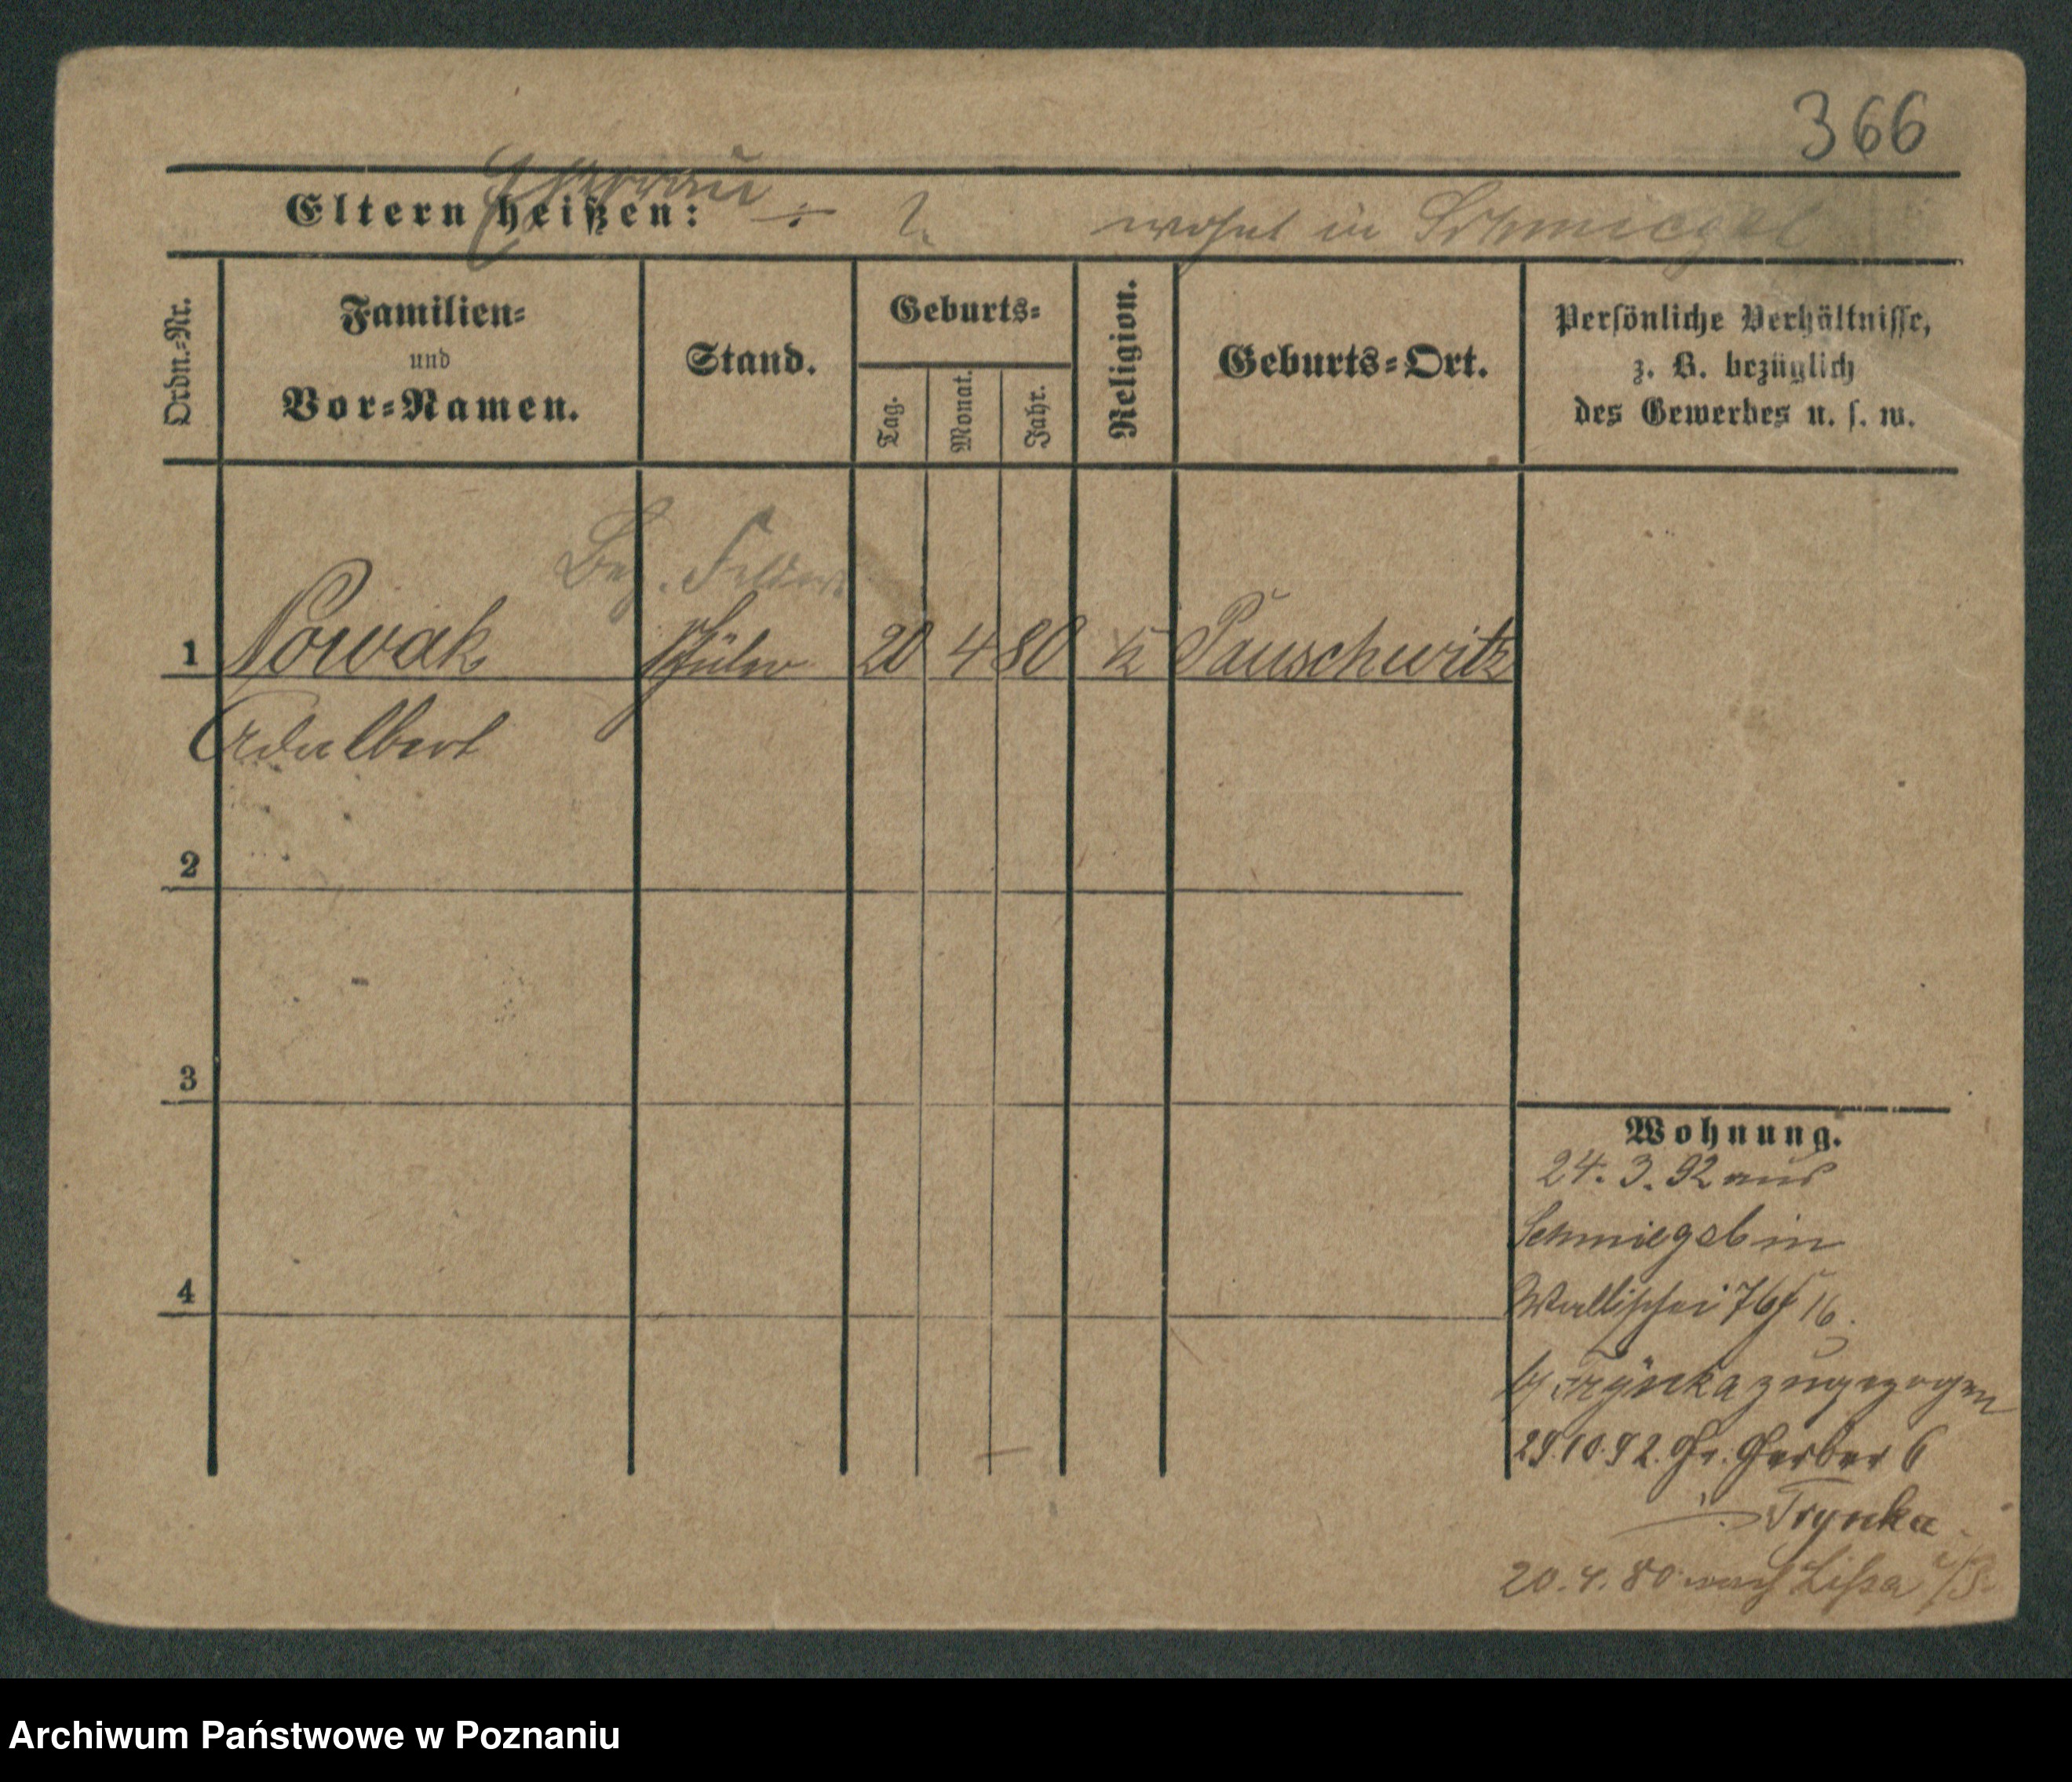 366
Eltern heißen: ÷ ?. wohnt in Schmiegel
Ordn.-Nr.
Familien-
und
Vor-Namen.
Stand.
Geburts-
Tag.
Monat.
Jahr.
Religion.
Geburts-Ort.
Persönliche Verhältnisse,
z. B. bezüglich
des Gewerbes u. s. w.
1 Nowak Schüler 20 4 80 K Pauschwitz
Adalbert
2
3
4
Wohnung.
24. 3. 92 aus
Schmiegel in
Wallischei 76/16.
b/ Trynka zugezogen
29.10.92. Gr. Gerber 6
Trynka
20. 4. 80 nach Lissa i/P.
Archiwum Państwowe w Poznaniu